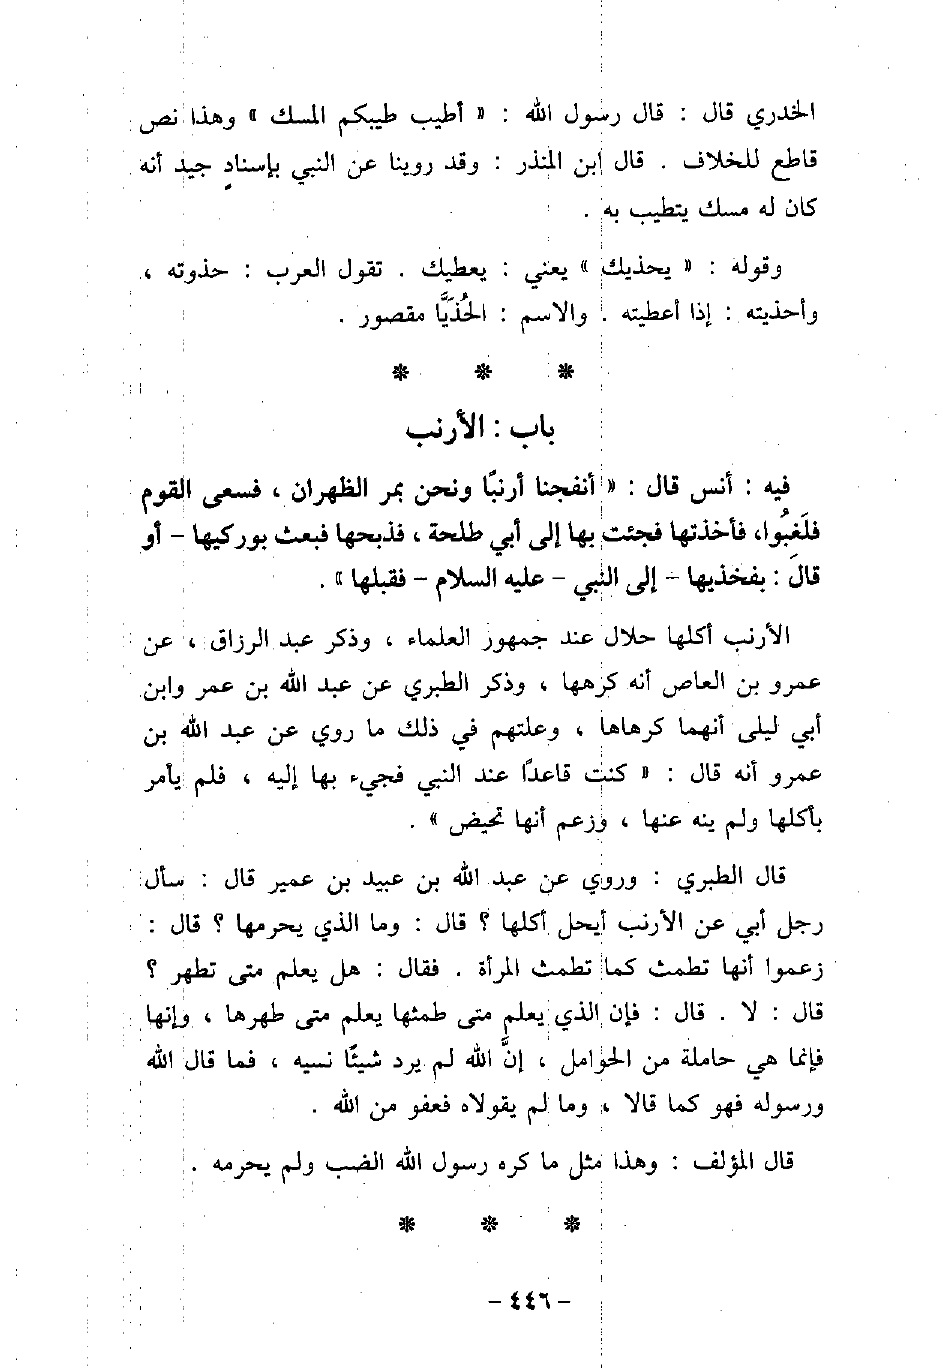 الخدري قال : قال رسول الله : « أطيب طيبكم المسك » وهذا نص
قاطع للخلاف . قال ابن المنذر : وقد روينا عن النبي بإسنادٍ جيد أنه
كان له مسك يتطيب به .
وقوله : « يحذيك » يعني : يعطيك . تقول العرب : حذوته ،
وأحذيته : إذا أعطيته . والاسم : الحُذَيَّا مقصور .
* * *
باب : الأرنب
فيه : أنس قال : « أنفجنا أرنبًا ونحن بمر الظهران ، فسعى القوم
فلَغِبُوا، فأخذتها فجئت بها إلى أبي طلحة ، فذبحها فبعث بوركيها – أو
قال : بفخذيها – إلى النبي – عليه السلام – فقبلها » .
الأرنب أكلها حلال عند جمهور العلماء ، وذكر عبد الرزاق ، عن
عمرو بن العاص أنه كرهها ، وذكر الطبري عن عبد الله بن عمر وابن
أبي ليلى أنهما كرهاها ، وعلتهم في ذلك ما روي عن عبد الله بن
عمرو أنه قال : « كنت قاعدًا عند النبي فجيء بها إليه ، فلم يأمر
بأكلها ولم ينه عنها ، وزعم أنها تحيض » .
قال الطبري : وروي عن عبد الله بن عبيد بن عمير قال : سأل
رجل أبي عن الأرنب أيحل أكلها ؟ قال : وما الذي يحرمها ؟ قال :
زعموا أنها تطمث كما تطمث المرأة . فقال : هل يعلم متى تطهر ؟
قال : لا . قال : فإن الذي يعلم متى طمثها يعلم متى طهرها ، وإنها
فإنما هي حاملة من الحوامل ، إنَّ الله لم يرد شيئًا نسيه ، فما قال الله
ورسوله فهو كما قالا ، وما لم يقولاه فعفو من الله .
قال المؤلف : وهذا مثل ما كره رسول الله الضب ولم يحرمه .
* * *
– ٤٤٦ –